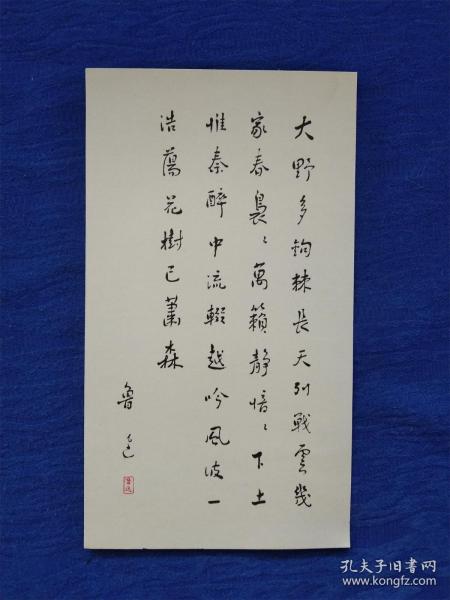 大野多鉤棘長天列戰雲幾
家春裊〻萬籟靜愔〻下土
惟秦醉中流輟越吟風波一
浩蕩花樹已蕭森
魯迅
魯迅
孔夫子旧书网
www.kongfz.com